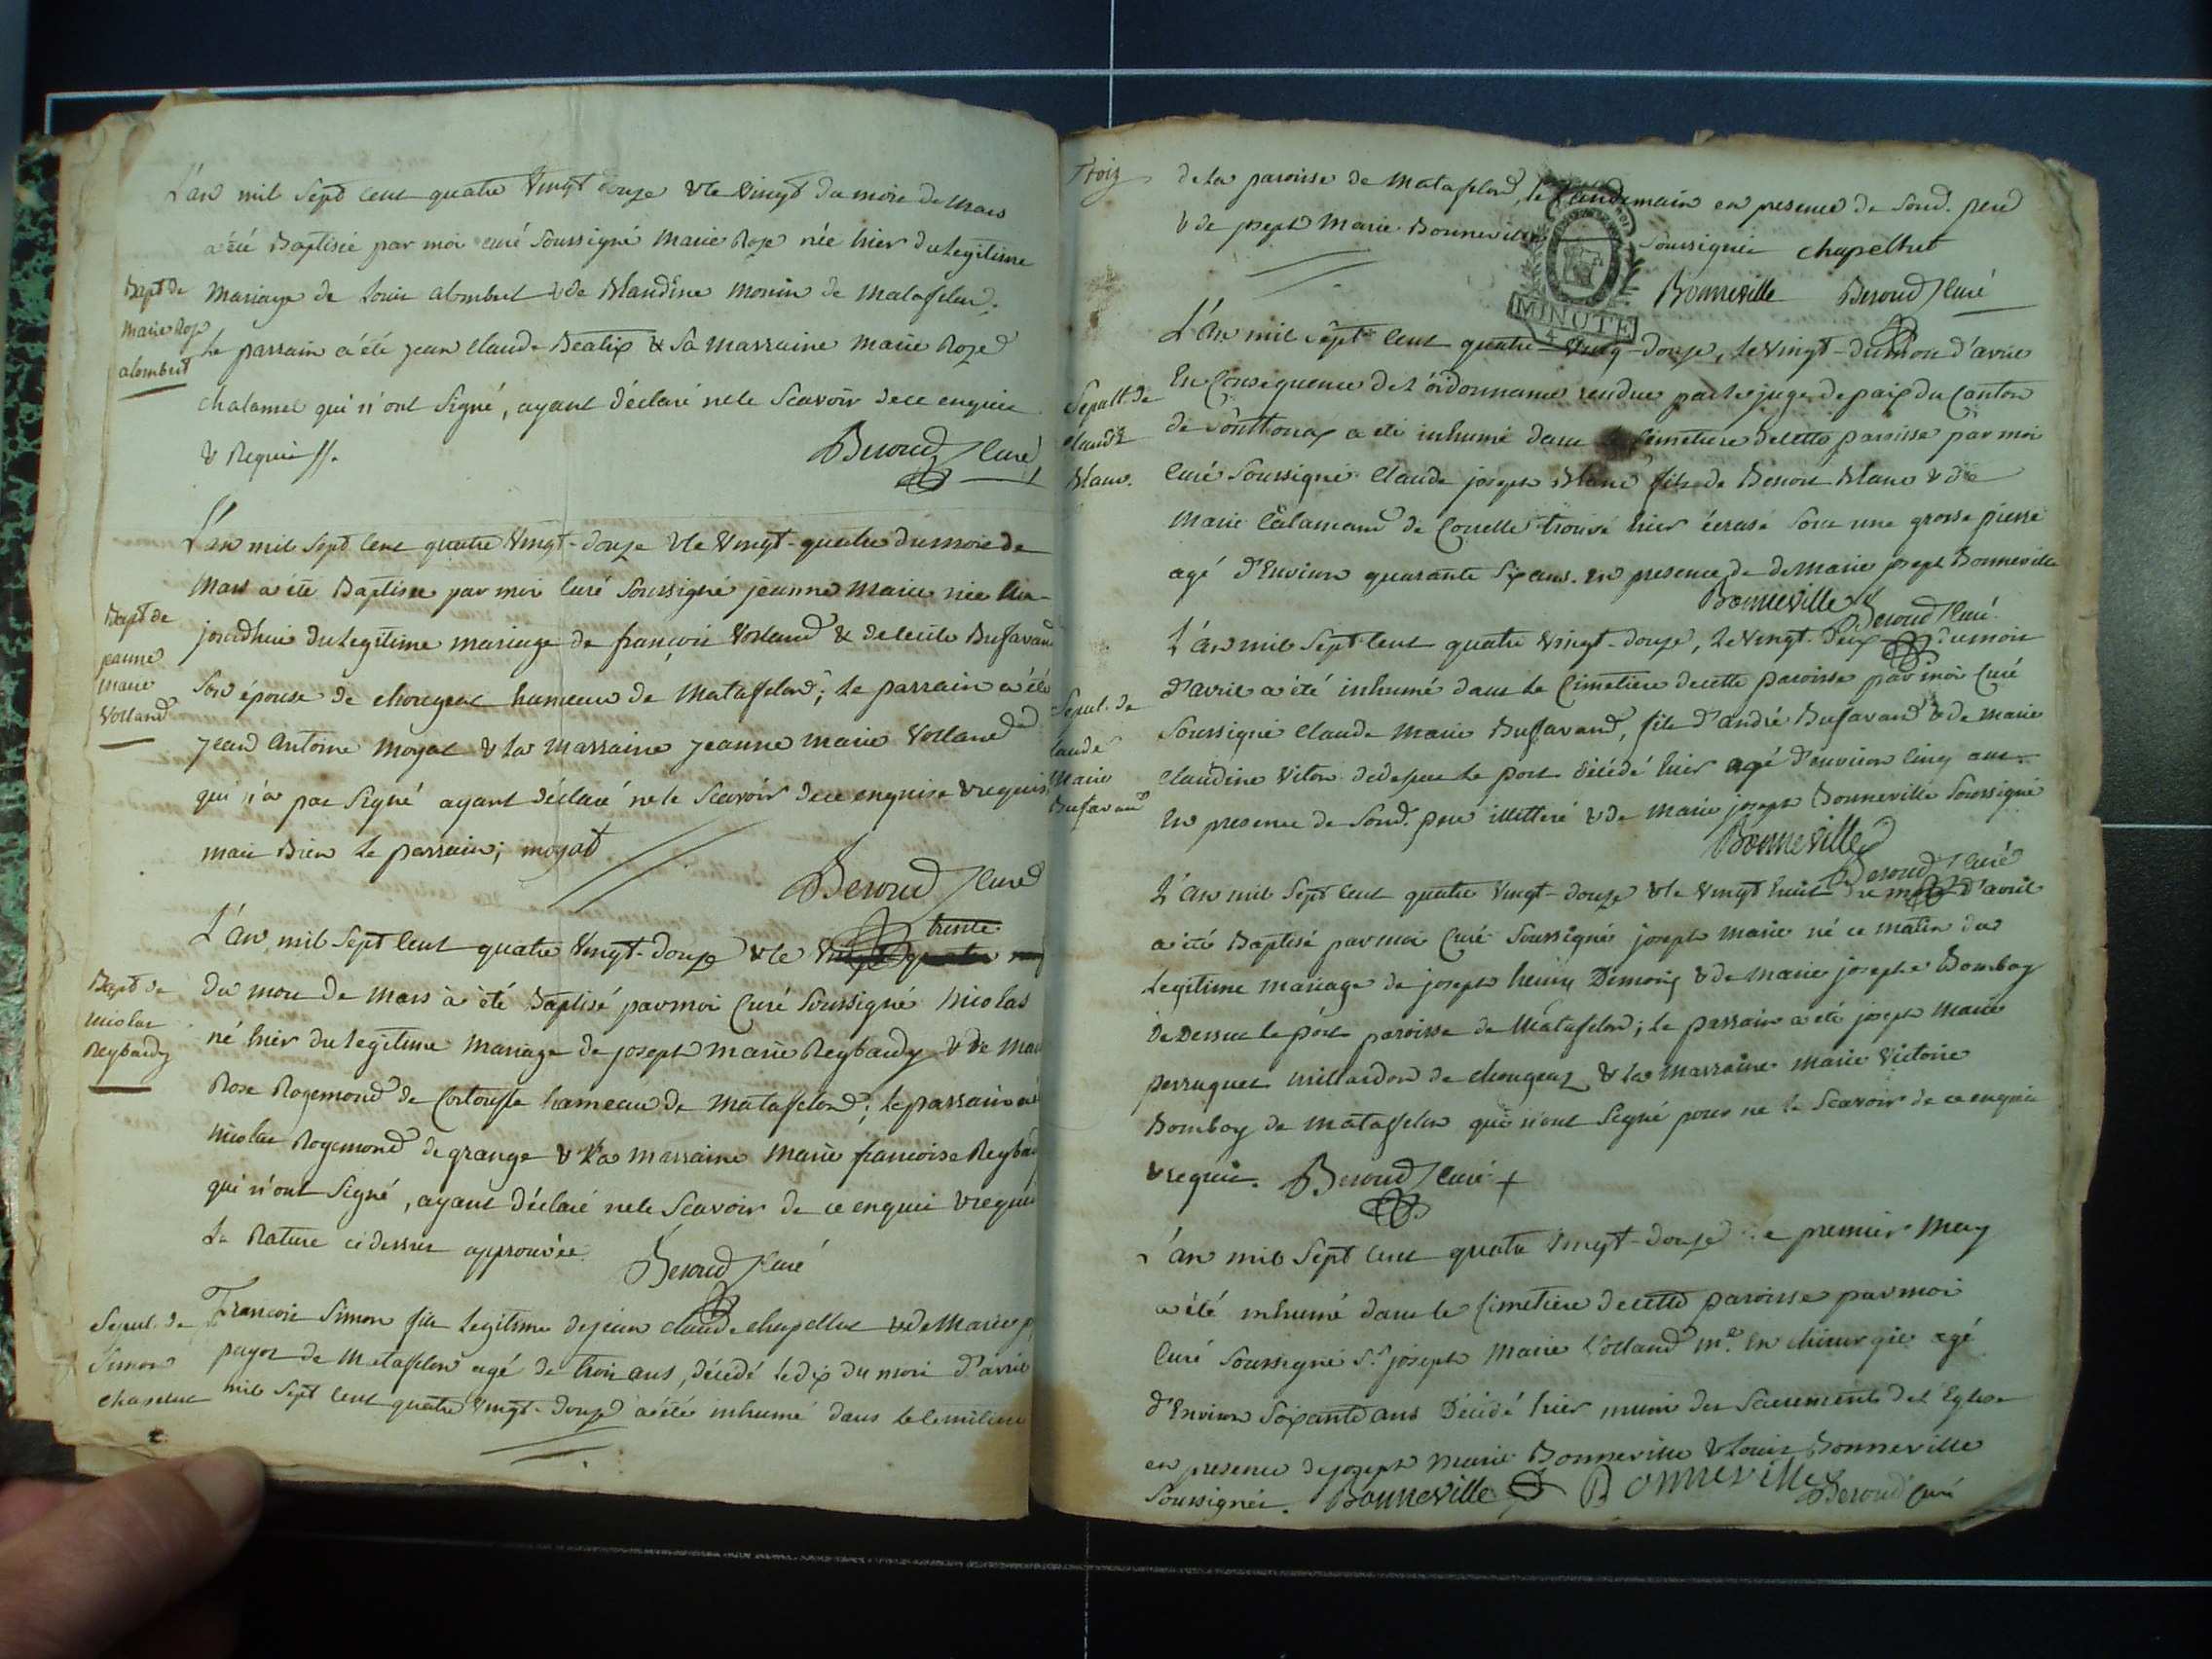 L'an mil sept cent quatre vingt douze & le vingt du mois de mars
a été Baptisée par moi curé soussigné Marie Roze née hier du legitime
Bapt de
Marie Roze
alombert
Mariage de Louis alombert & de Blandine Monin de Matafelon;
le parrain a été jean claude Beatrix & sa marraine Marie Roze
chalamel qui n'ont signé, ayant déclaré ne le scavoir de ce enquis
& Requis
Beroud curé
L'an mil sept cent quatre vingt-douze & le vingt-quatre du mois de
mars a été Baptisée par moi curé soussigné jeanne Marie née
Bapt de
jeanne
marie
Volland
jourdhui du legitime mariage de françois Volland & de Cecile Bufavand
son épouse de chougeat hameau de Matafelon; le parrain a été
jean antoine moyat & la marraine jeanne marie Volland
qui n'a pas signé ayant déclaré ne le scavoir de ce enquise & requise
mais bien le parrain; moyat
Beroud curé
trente
L'an mil sept cent quatre vingt-douze & le
Bapt de
nicolas
Reybardy
du mois de mars a été Baptisé par moi curé soussigné nicolas
né hier du legitime mariage de joseph marie Reybardy & de
Rose Rogemond de Corton hameau de Matafelon; le parrain a
nicolas Rogemond de grange & la marraine marie francoise
qui n'ont signé, ayant déclaré ne le scavoir de ce enquis & requis
La Rature cidessus approuvée
Beroud curé
Sepul. de
Simon
françois Simon fils legitime de jean claude chapellut & de Marie
de Matafelon agé de trois ans, décédé le dix du mois d'avril
mil sept cent quatre vingt-douze a été inhumé dans le cimetiere
Trois
de la paroisse de Matafelon, le landemain en presence de son d. pere
& de joseph Marie Bonneville soussignés chapellut
Bonneville Beroud curé
MINUTE
L'An mil sept cent quatre-vingt-douze, le vingt-du mois d'avril
Sepult. de
claude
Blanc.
En consequence de l'ordonnance rendue par le juge de paix du Canton
de Sonthonax a été inhumé dans le cimetiere de cette paroisse par moi
curé soussigné claude joseph Blanc fils de Benoit Blanc & de
Marie Calamand de Coiselle trouvé hier écrasé sous une grosse pierre
agé d'Environ quarante six ans. en presence de de Marie joseph Bonneville
Bonneville Beroud curé
L'an mil sept cent quatre vingt-douze, le vingt-deux du mois
Sepul. de
claude
Marie
Bufavand
d'avril a été inhumé dans le Cimetiere de cette paroisse par moi curé
soussigné claude Marie Buffavand, fils d'andré Bufavand & de marie
claudine Viton de dessus le port décédé hier agé d'environ cinq ans.
en presence de son d. pere illettéré & de Marie joseph Bonneville soussigné
Bonneville
Beroud curé
L'an mil sept cent quatre vingt-douze & le vingt huit du mois d'avril
a été Baptisé par moi curé soussigné joseph marie né ce matin du
legitime mariage de joseph henry & de Marie josephe Bomboy
de Dessus le port paroisse de Matafelon; le parrain a été joseph Marie
perruquet de chougeat & la marraine marie Victoire
Bomboy de Matafelon qui n'ont signé pour ne le scavoir de ce enquis
& requis. Beroud curé
L'an mil sept cent quatre vingt-douze le premier may
a été inhumé dans le cimetiere de cette paroisse par moi
curé soussigné Sr. joseph Marie Volland me. en chirurgie agé
d'Environ soixante ans Décédé hier muni des sacrements de l'Eglise
en presence de joseph Marie Bonneville & Louis Bonneville
soussignés. Bonneville Bonneville Beroud curé